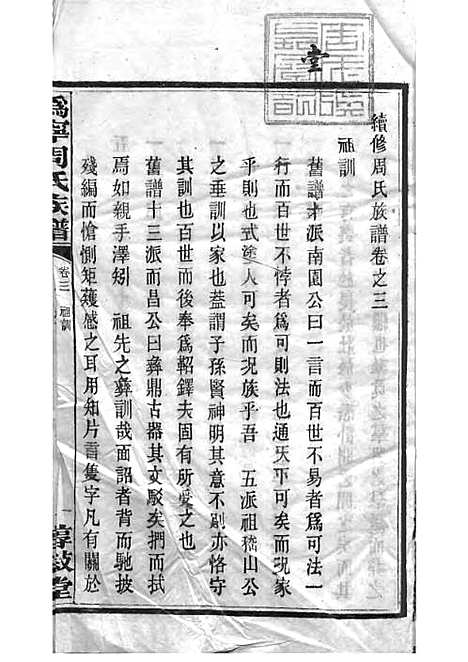 堂
續修周氏族譜卷之三
祖訓
舊譜才派南園公曰一言而百世不易者為可法一
行而百世不悖者為可則法也通天下可矣而況家
乎則也式途人可矣而況族乎吾 五派祖嵇山公
之垂訓以家也蓋謂子孫賢神明其意不刷亦恪守
其訓也百世而後奉為鞀鐸夫固有所愛之也
舊譜十三派而昌公曰彝鼎古器其文駁矣捫而拭
焉如親手澤矧 祖先之彝訓哉面詔者背而馳披
殘編而愴惻矩矱感之耳用知片言隻字凡有關於
寧周氏族譜
卷三 祖訓
一
敦堂